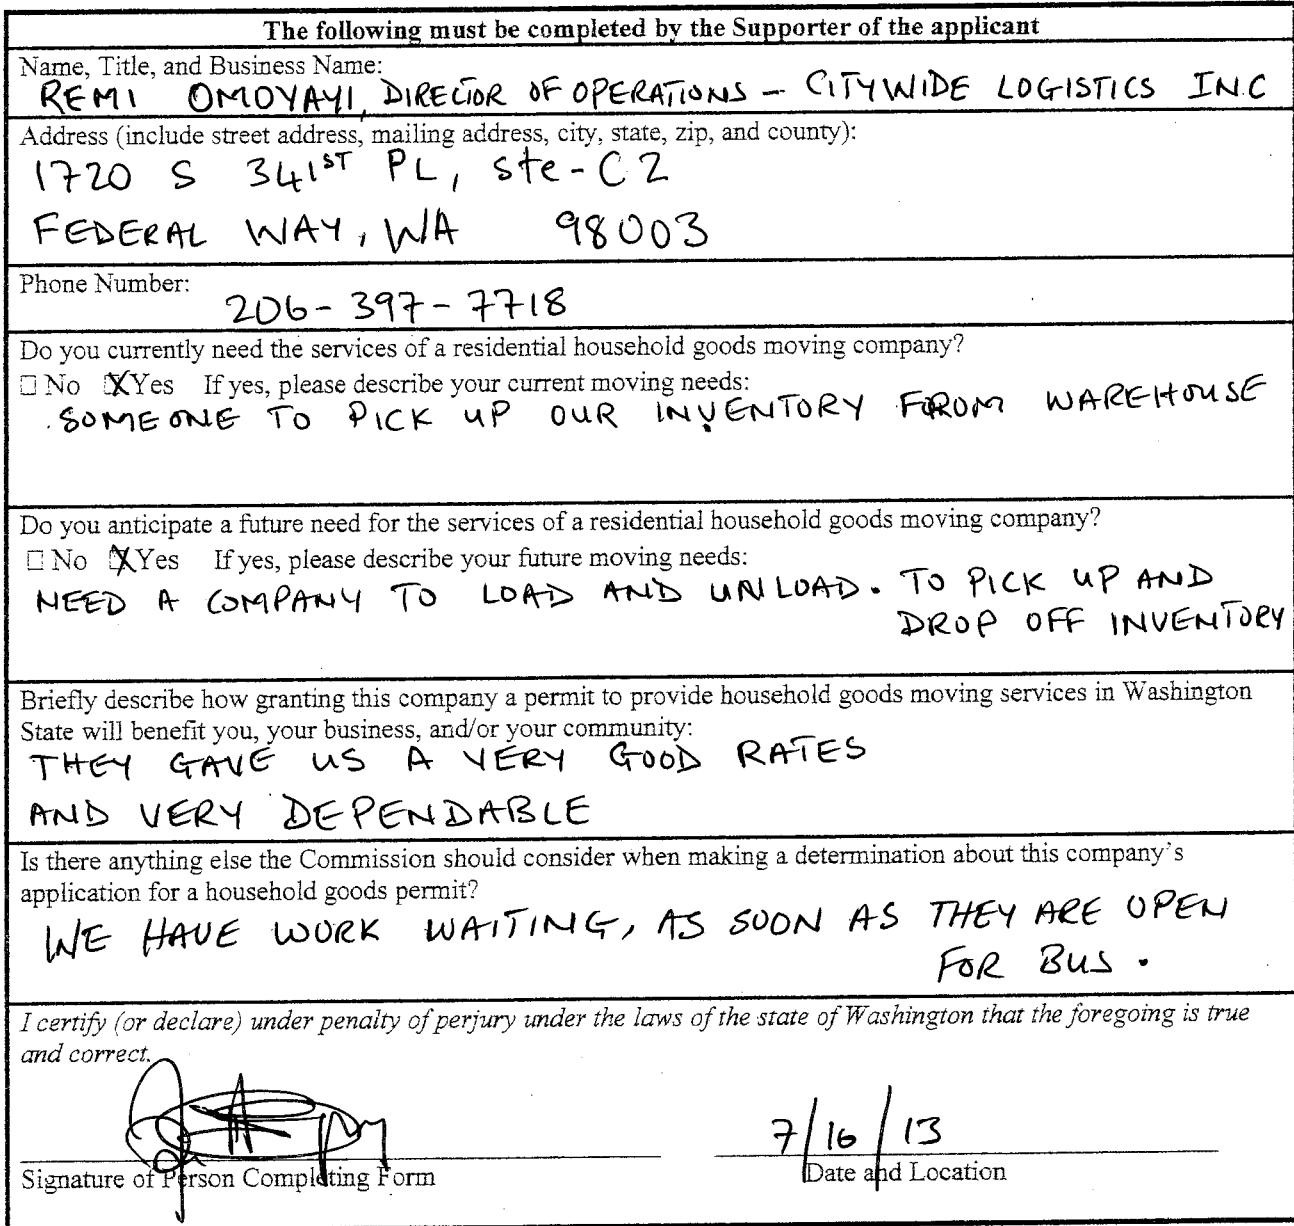 The following must be completed by the Supporter of the applicant
Name, Title, and Business Name:
REMI OMOYAYI, DIRECTOR OF OPERATIONS - CITYWIDE LOGISTICS INC
Address (include street address, mailing address, city, state, zip, and county):
1720 S 341ST PL, Ste-C2
FEDERAL WAY, WA 98003
Phone Number:
206-397-7718
Do you currently need the services of a residential household goods moving company?
☐ No ☒ Yes If yes, please describe your current moving needs:
SOMEONE TO PICK UP OUR INVENTORY FROM WAREHOUSE
Do you anticipate a future need for the services of a residential household goods moving company?
☐ No ☒ Yes If yes, please describe your future moving needs:
NEED A COMPANY TO LOAD AND UNLOAD. TO PICK UP AND
DROP OFF INVENTORY
Briefly describe how granting this company a permit to provide household goods moving services in Washington
State will benefit you, your business, and/or your community:
THEY GAVE US A VERY GOOD RATES
AND VERY DEPENDABLE
Is there anything else the Commission should consider when making a determination about this company's
application for a household goods permit?
WE HAVE WORK WAITING, AS SOON AS THEY ARE OPEN
FOR BUS.
I certify (or declare) under penalty of perjury under the laws of the state of Washington that the foregoing is true
and correct.
7/16/13
Signature of Person Completing Form Date and Location